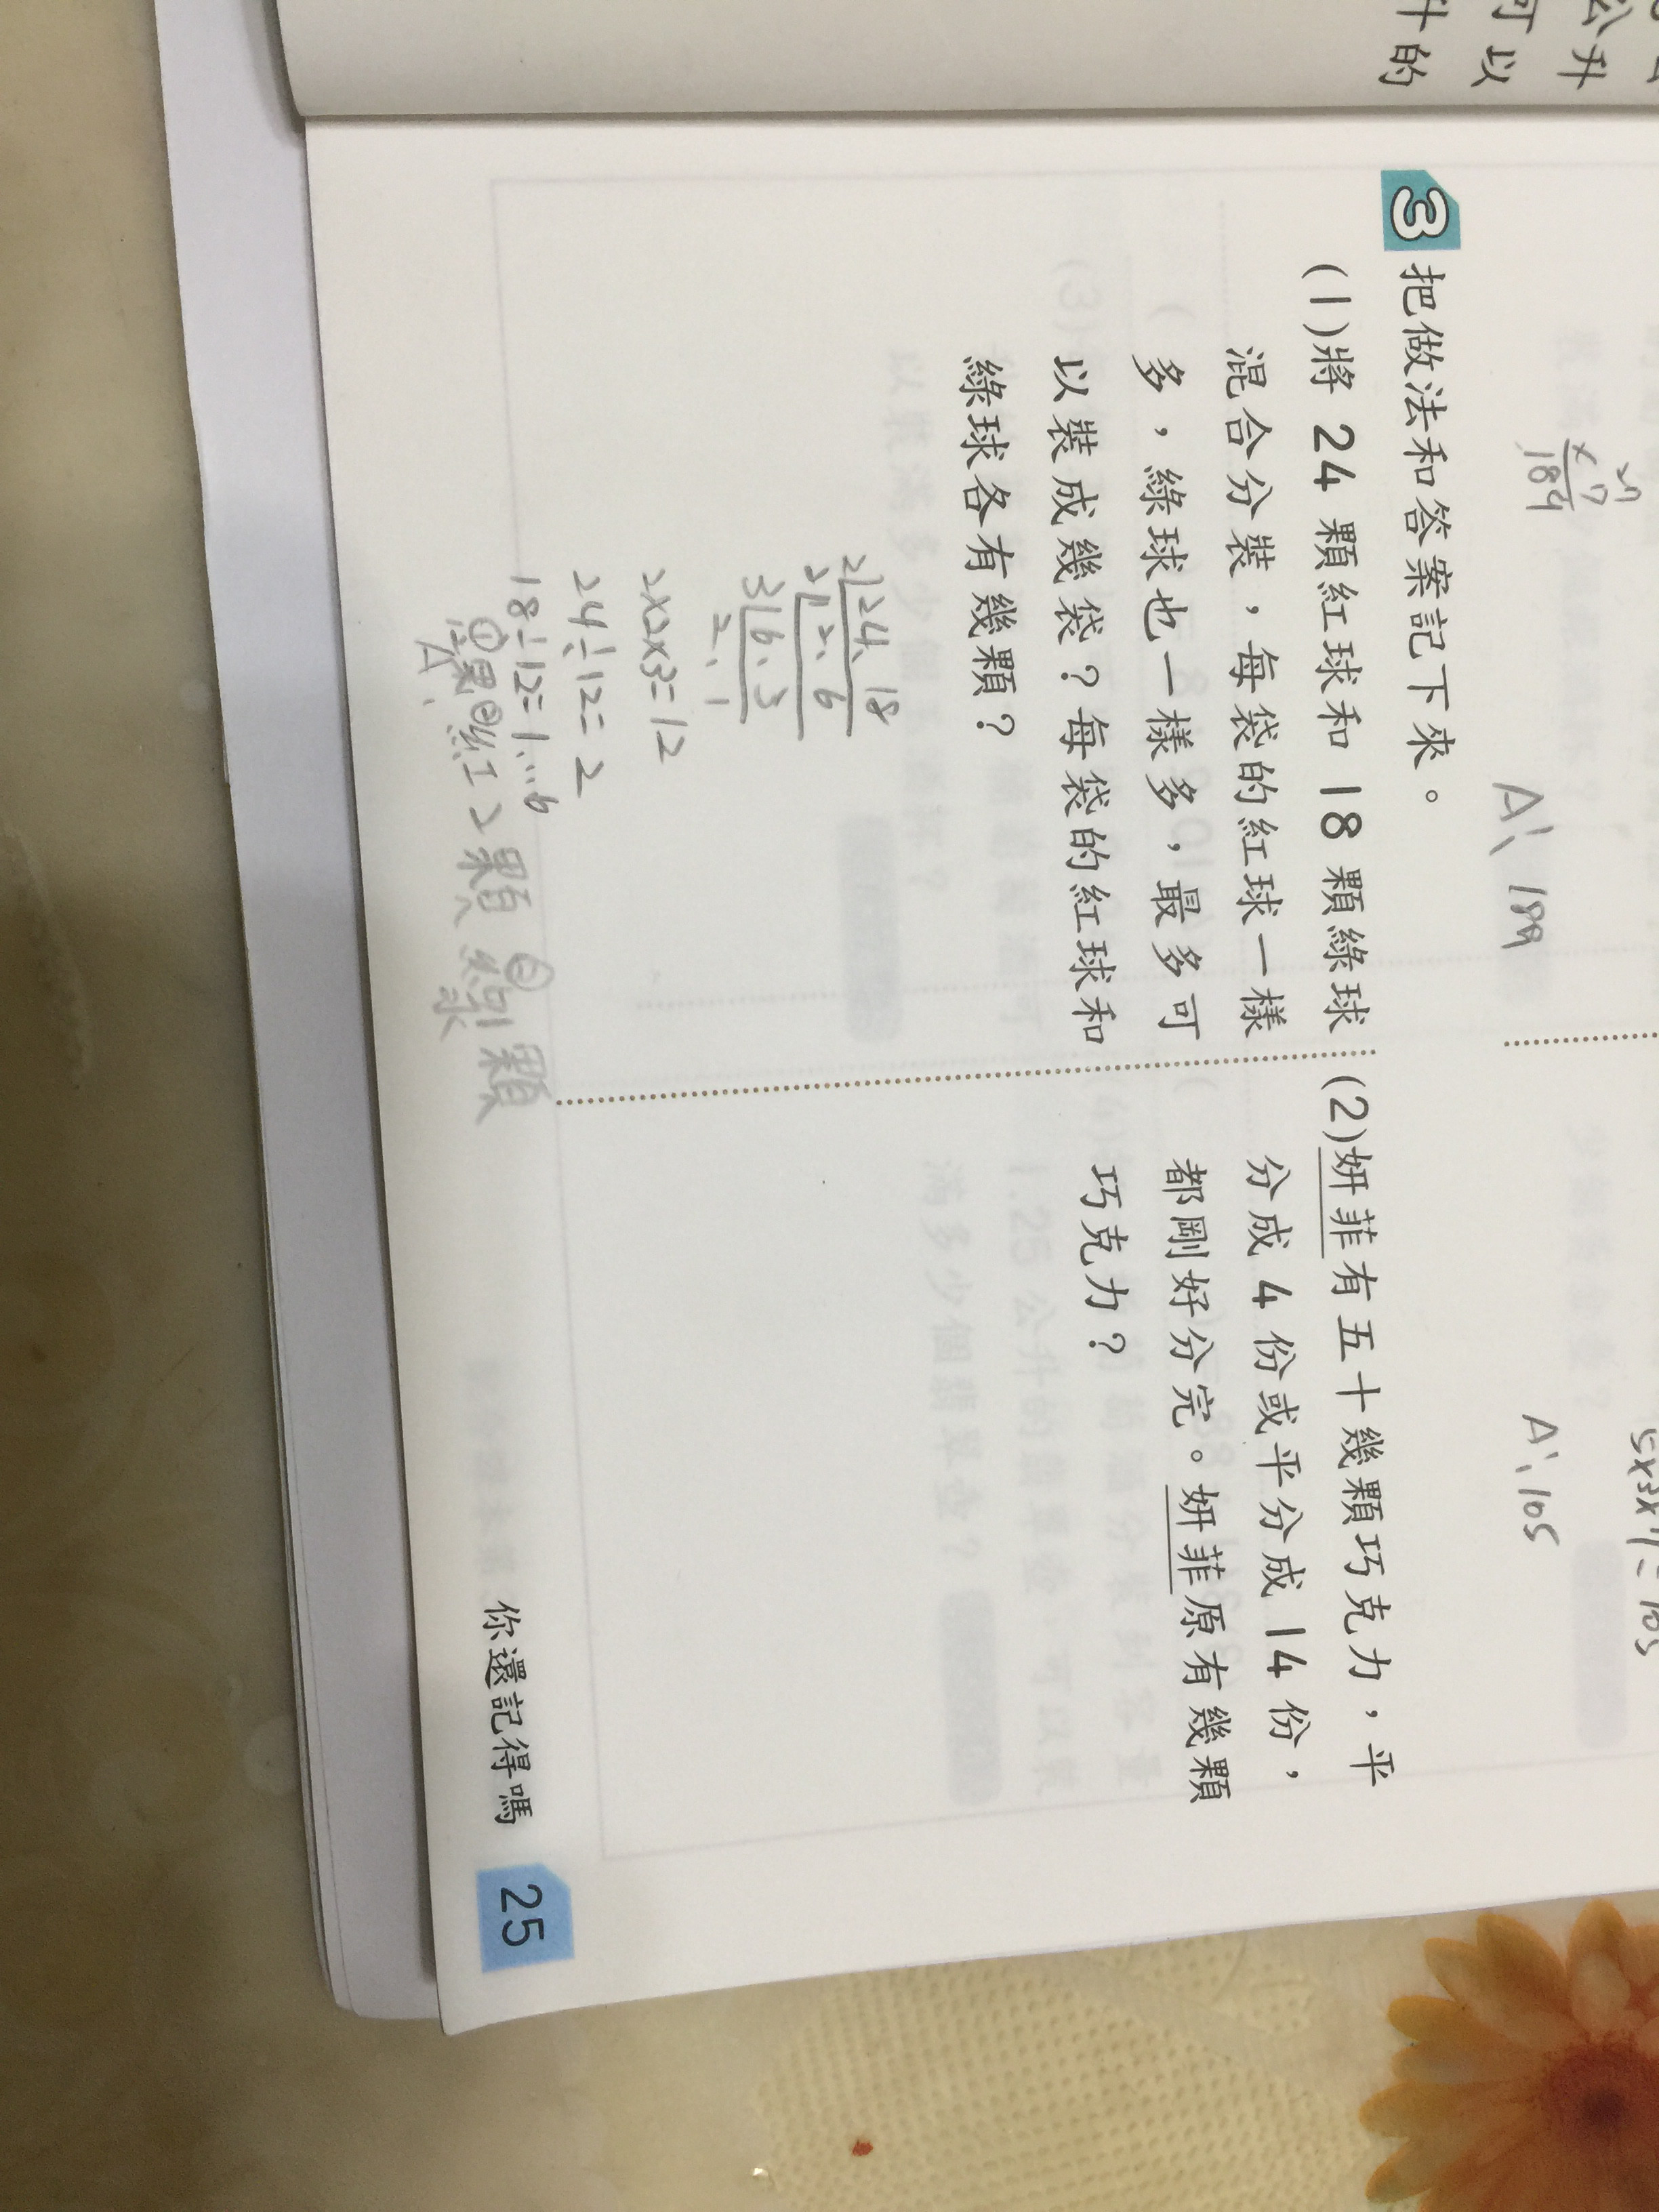 升的
可以
公升
27
×7
189
A:189
5×3×7=105
A:105
3 把做法和答案記下來。
(1)將 24 顆紅球和 18 顆綠球
混合分裝，每袋的紅球一樣
多，綠球也一樣多，最多可
以裝成幾袋？每袋的紅球和
綠球各有幾顆？
2)24、18
2)12、6
3)6、3
2、1
2×2×3=12
24÷12=2
18÷12=1…6
A:
紅2顆、②綠1顆
球
(2)妍菲有五十幾顆巧克力，平
分成 4 份或平分成 14 份，
都剛好分完。妍菲原有幾顆
巧克力？
你還記得嗎 25